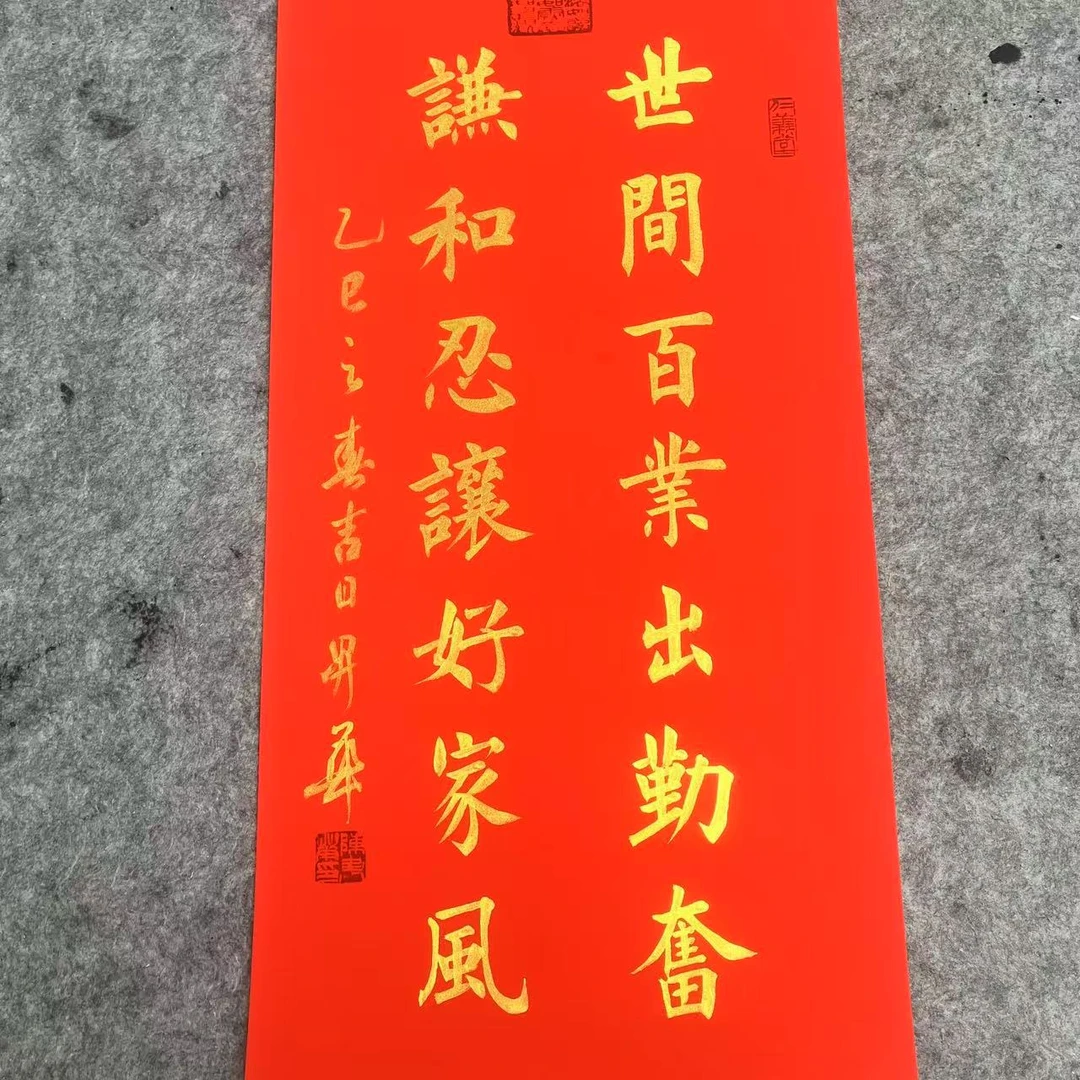 世間百業出勤奮
謙和忍讓好家風
乙巳之春吉日昇華
仁義堂